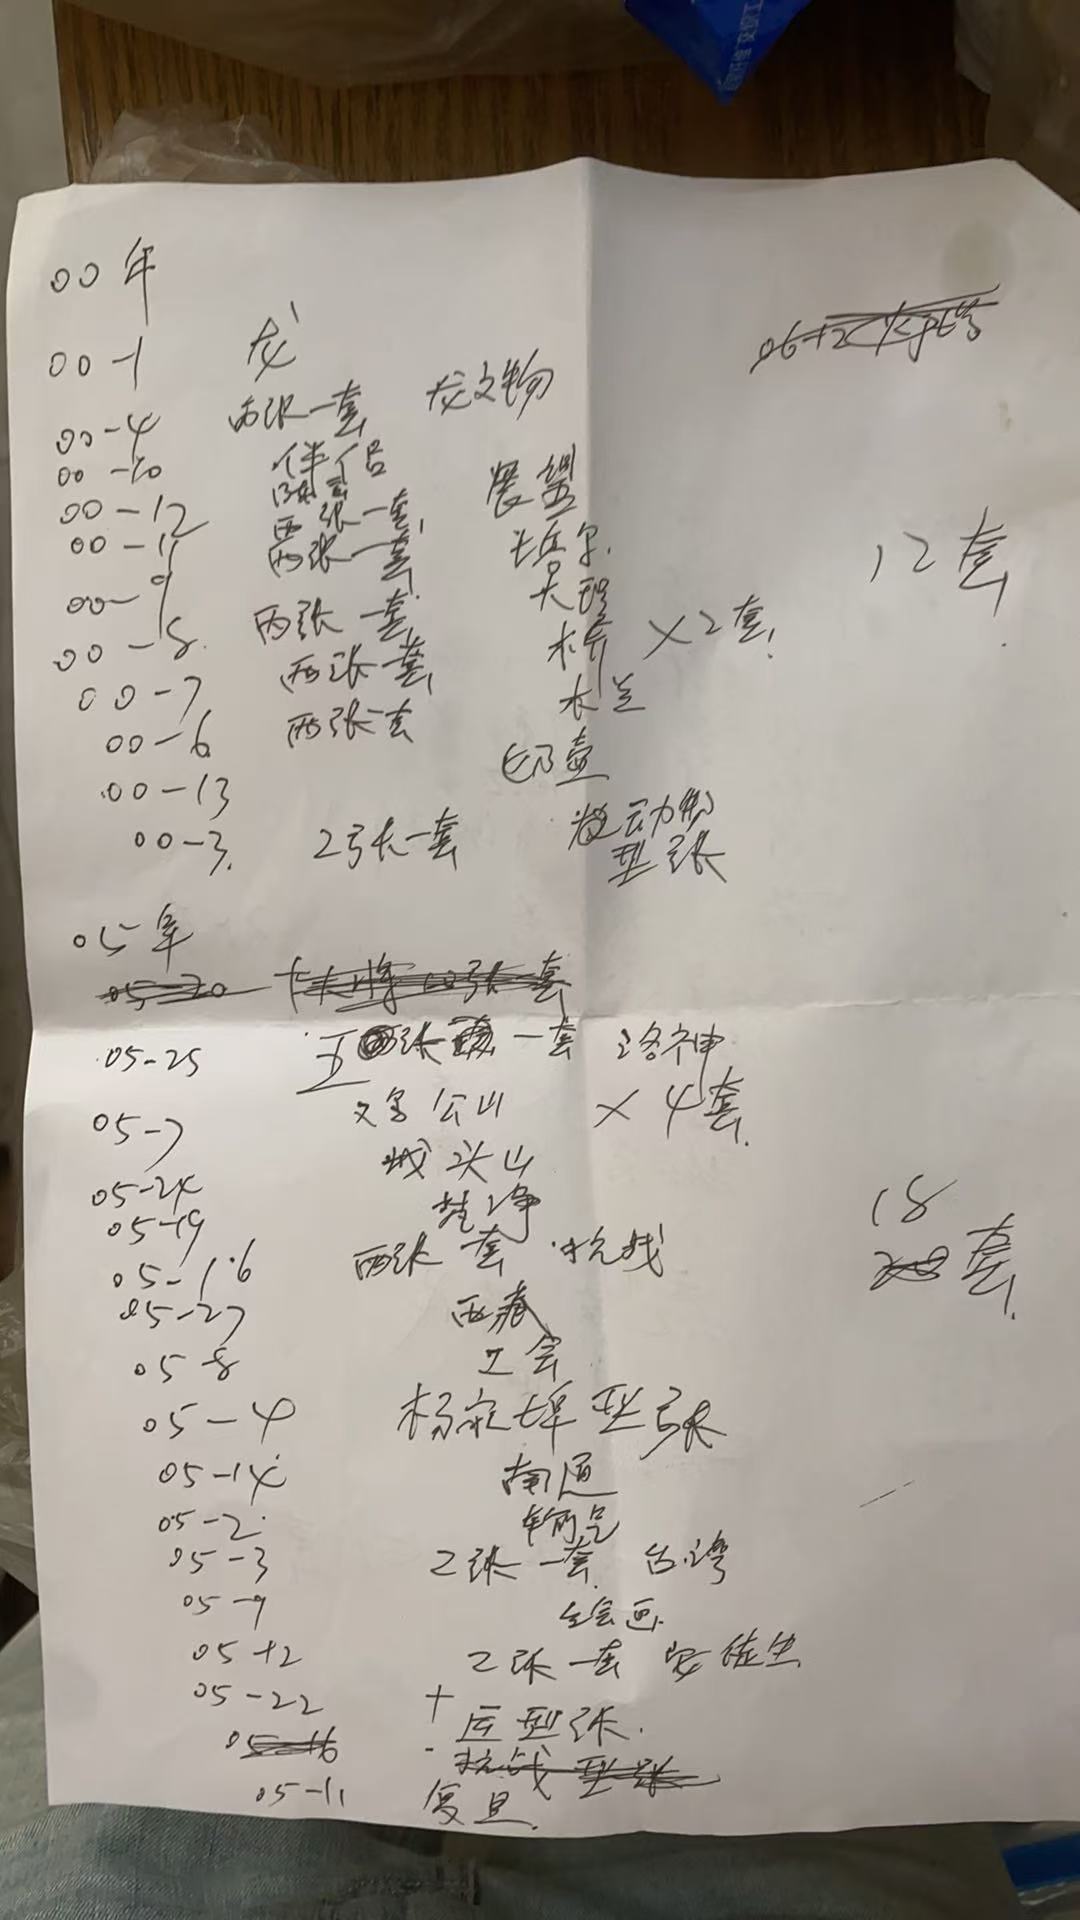 00年
00-1 龙
00-4 两张一套 龙文物
00-20 伴侣
陈云
00-12 两张一套 展望
00-11 两张一套 卡通尔
00-9 大理
00-8 两张一套 木偶 ×2套
00-7 两张一套 木兰
00-6 两张一套
00-13 壶
00-3 2张一套 动物
型张
12套
05年
05-25 五张一套 洛神
05-7 公山 ×4套
05-24 城头山
05-19 梵净
05-16 两张一套 抗战
05-27 西藏
05-8 工会
05-4 杨家埠型张
05-14 南通
05-2
05-3 2张一套 台湾
05-9 绘画
05-12 2张一套 安徒生
05-22 十运型张
抗战型张
05-11 复旦
18套